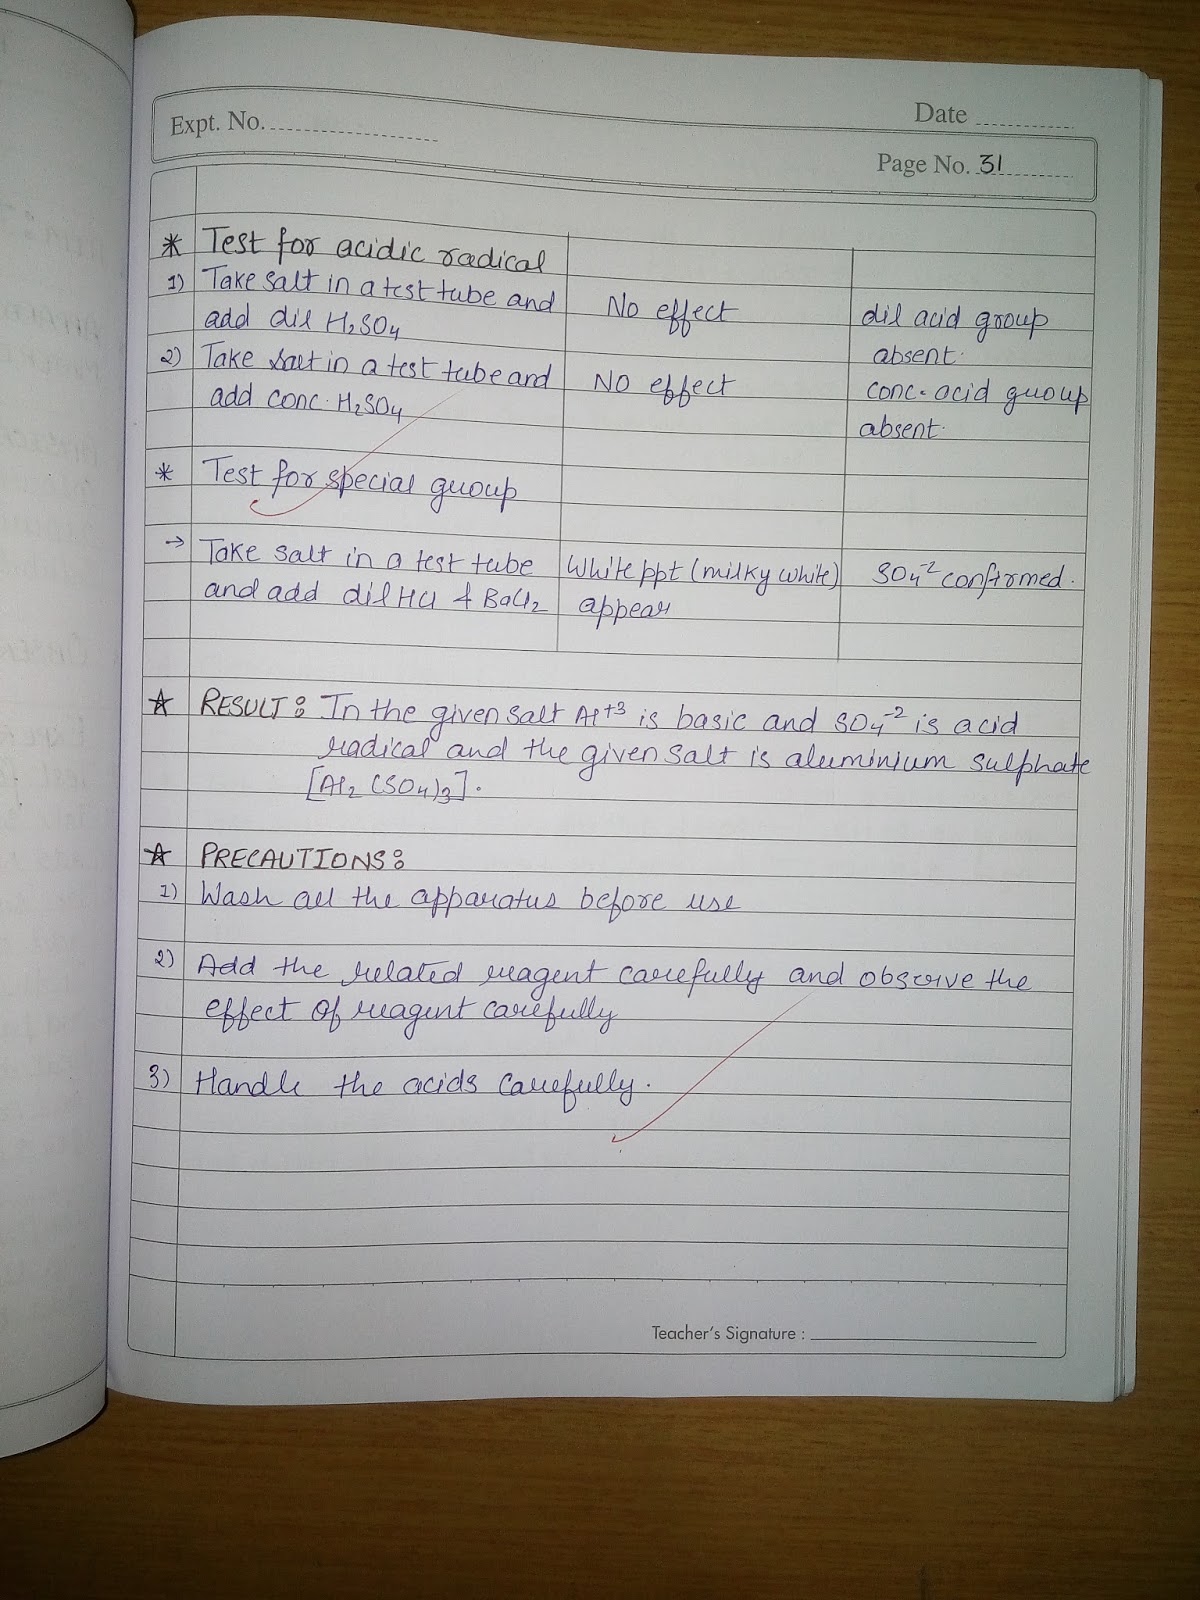 Expt. No.
Date
Page No. 31
* Test for acidic radical
1) Take salt in a test tube and No effect dil acid group
add dil H₂SO₄ absent.
2) Take salt in a test tube and NO effect conc. acid group
add conc. H₂SO₄ absent.
* Test for special group
→ Take salt in a test tube White ppt (milky white) SO₄⁻² confirmed.
and add dil HCl & BaCl₂ appear
☆ RESULT: In the given salt Al⁺³ is basic and SO₄⁻² is acid
radical and the given salt is aluminium sulphate
[Al₂(SO₄)₃].
☆ PRECAUTIONS:
1) Wash all the apparatus before use
2) Add the related reagent carefully and observe the
effect of reagent carefully
3) Handle the acids carefully.
Teacher's Signature :